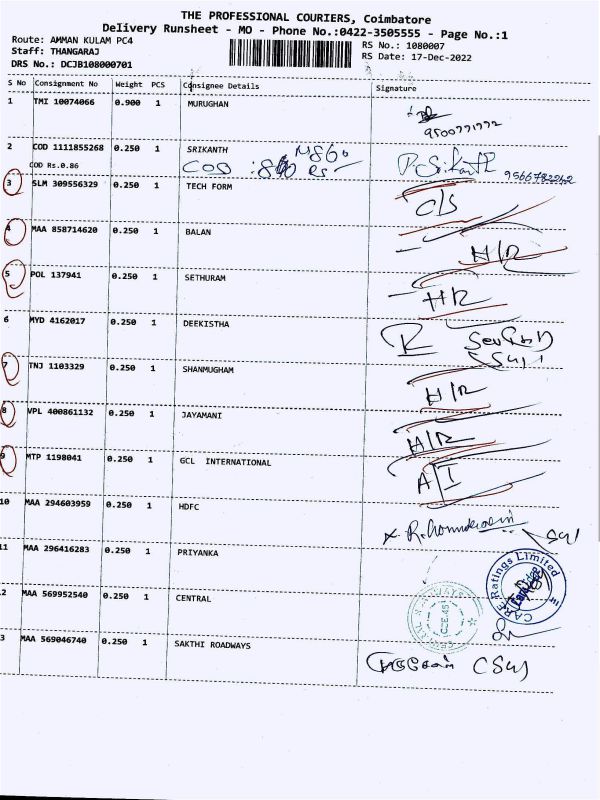 THE PROFESSIONAL COURIERS, Coimbatore
Delivery Runsheet - MO - Phone No.:0422-3505555 - Page No.:1
Route: AMMAN KULAM PC4
Staff: THANGARAJ
DRS No.: DCJB108000701
RS No.: 1080007
RS Date: 17-Dec-2022
S No Consignment No Weight PCS Consignee Details Signature
1 TMI 10074066 0.900 1 MURUGHAN
9500771772
2 COD 1111855268 0.250 1 SRIKANTH
COD Rs.0.86 COD : Rs
P. Srikanth 9566782242
3 SLM 309556329 0.250 1 TECH FORM C/S
4 MAA 858714620 0.250 1 BALAN H/R
5 POL 137941 0.250 1 SETHURAM H/R
6 MYD 4162017 0.250 1 DEEKISTHA
7 TNJ 1103329 0.250 1 SHANMUGHAM H/R
8 VPL 400861132 0.250 1 JAYAMANI A/R
9 MTP 1198041 0.250 1 GCL INTERNATIONAL A/I
10 MAA 294603959 0.250 1 HDFC
11 MAA 296416283 0.250 1 PRIYANKA
CARE Ratings Limited
2 MAA 569952540 0.250 1 CENTRAL
3 MAA 569046740 0.250 1 SAKTHI ROADWAYS